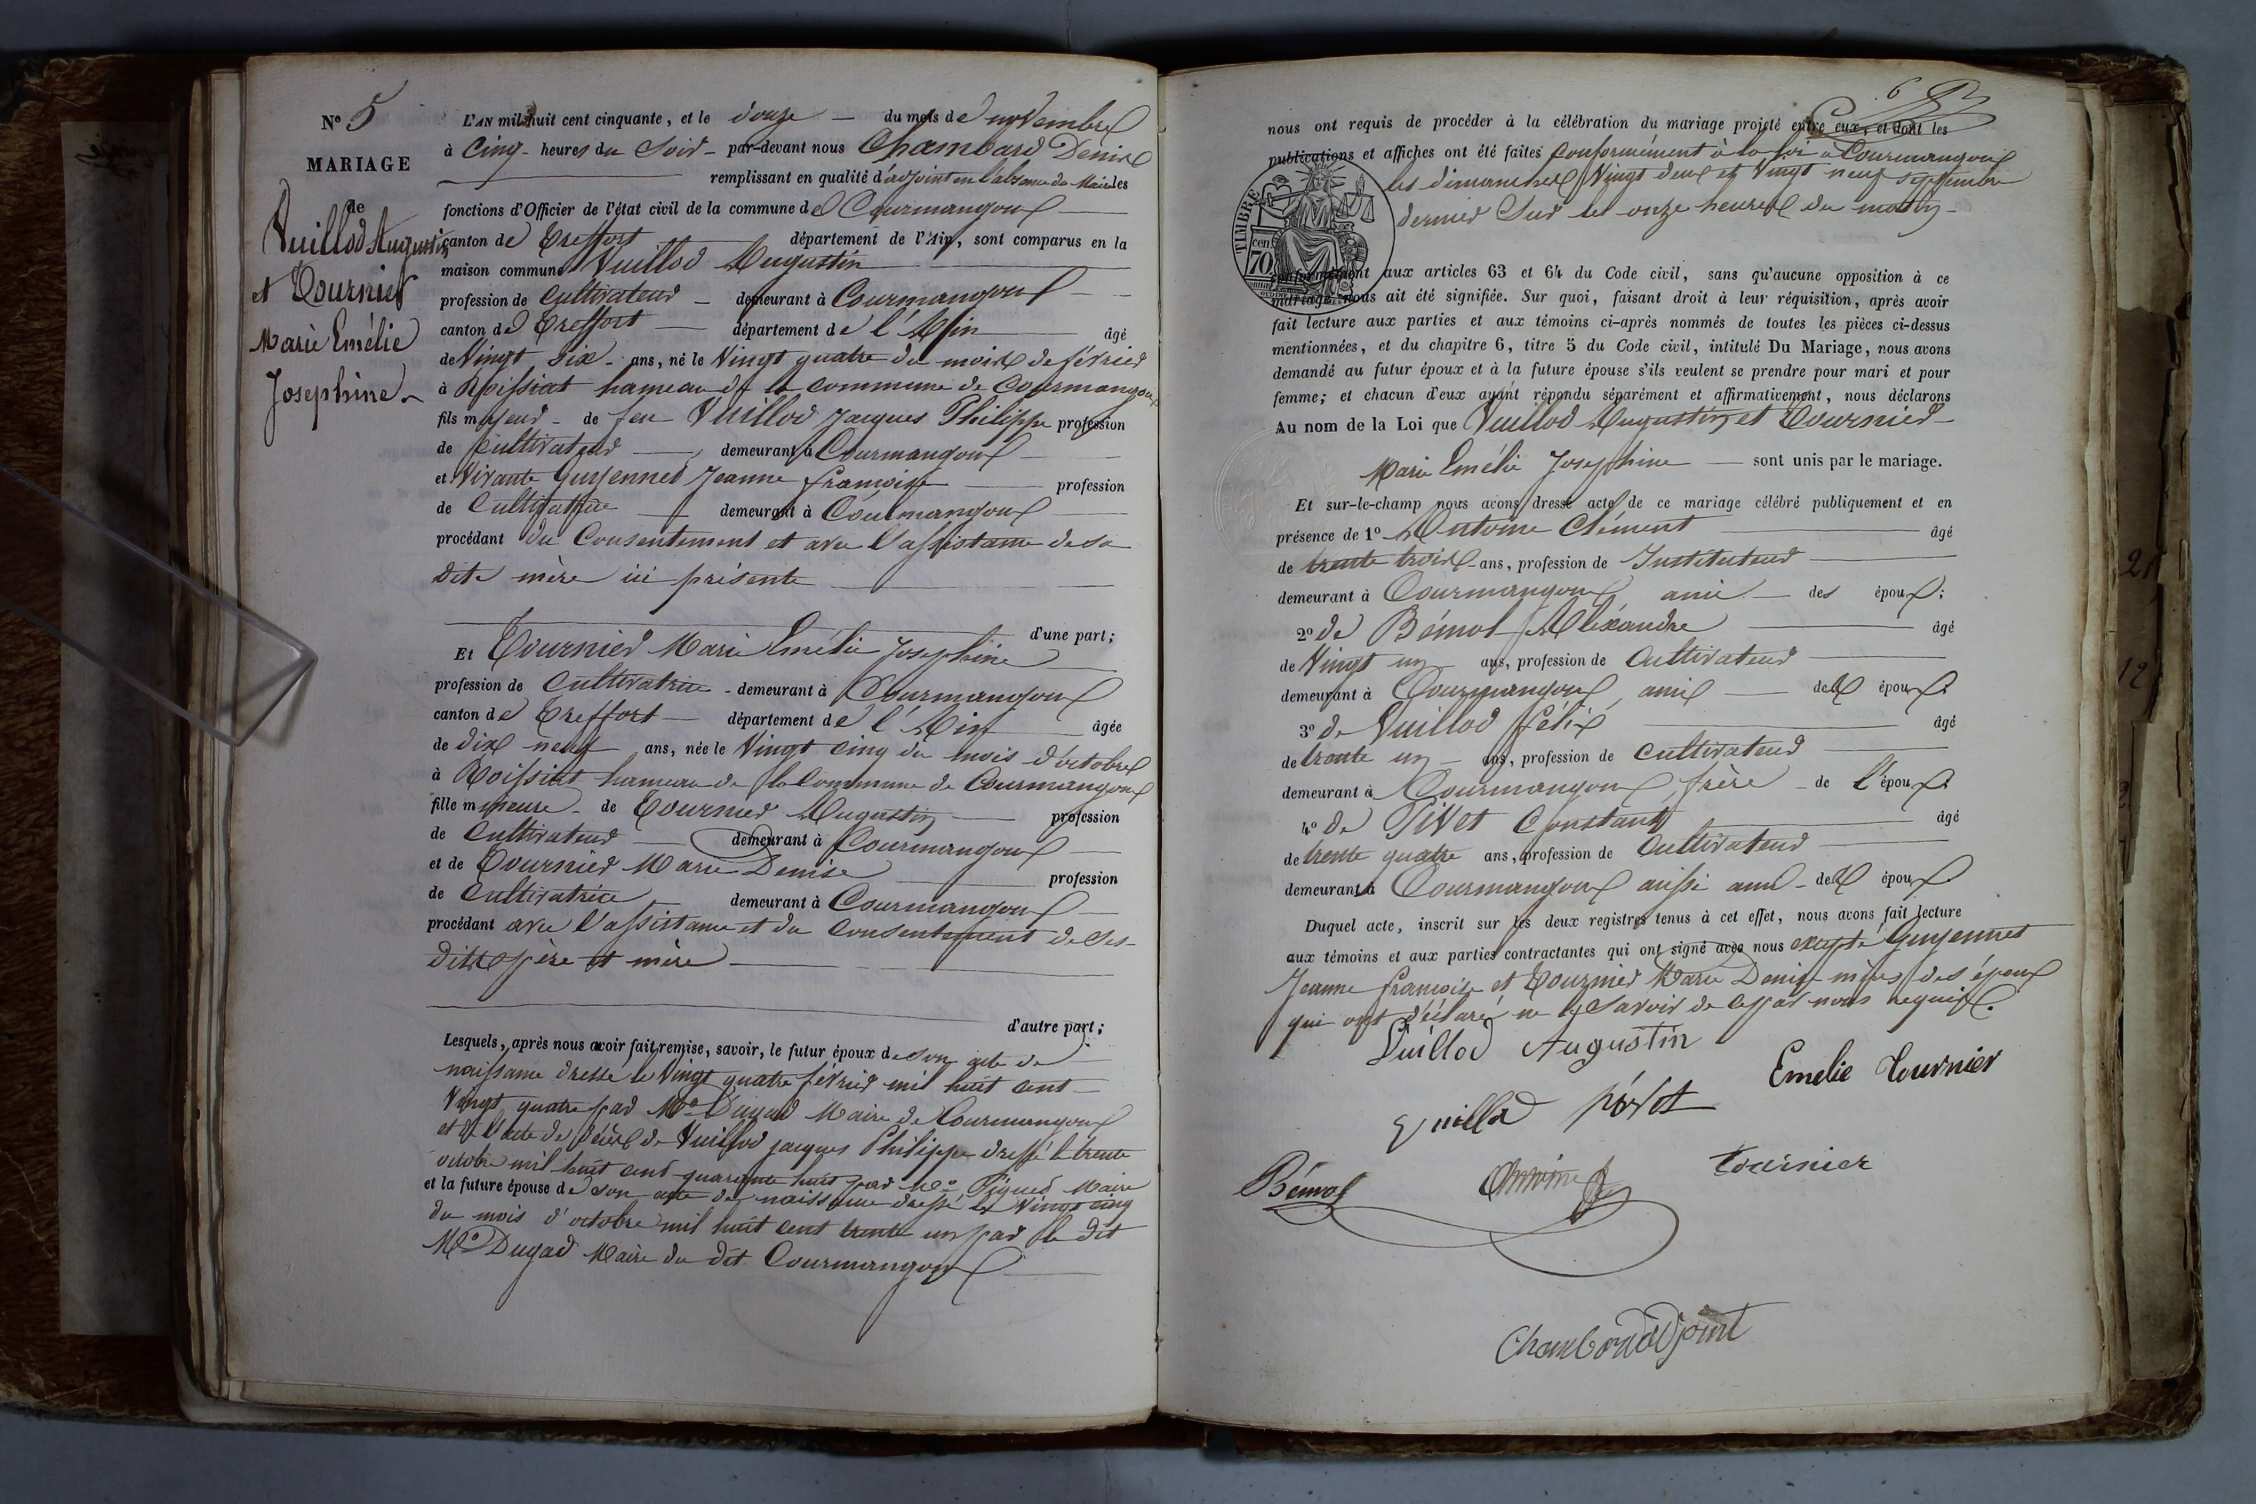 N° 5
MARIAGE
de
Vuillod Augustin
et Tournier
Marie Emélie
Josephine
L'AN mil huit cent cinquante, et le douze du mois de novembre
à cinq heures du soir par-devant nous Chambard Denis
remplissant en qualité d'adjoint en l'absence du Maire les
fonctions d'Officier de l'état civil de la commune de Courmangoux
canton de Treffort département de l'Ain, sont comparus en la
maison commune Vuillod Augustin
profession de cultivateur demeurant à Courmangoux
canton de Treffort département de l'Ain âgé
de Vingt six ans, né le Vingt quatre du mois de février
à Roissiat hameau de la commune de Courmangoux
fils majeur de feu Vuillod Jacques Philippe profession
de Cultivateur demeurant à Courmangoux
et Vivante Guyennet Jeanne françoise profession
de Cultivatrice demeurant à Courmangoux
procédant du Consentement et avec l'assistance de sa
dite mère ici présente
d'une part;
Et Tournier Marie Emélie Josephine
profession de cultivatrice demeurant à Courmangoux
canton de Treffort département de l'Ain âgée
de dix neuf ans, née le Vingt cinq du mois d'octobre
à Roissiat hameau de la Commune de Courmangoux
fille mineure de Tournier Augustin profession
de Cultivateur demeurant à Courmangoux
et de Tournier Marie Denise profession
de Cultivatrice demeurant à Courmangoux
procédant avec l'assistance et du consentement de ses
dits père et mère
d'autre part;
Lesquels, après nous avoir fait remise, savoir, le futur époux de son acte de
naissance dressé le Vingt quatre février mil huit cent
Vingt quatre par Mr Dugad Maire de Courmangoux
et de l'acte de décès de Vuillod jacques Philippe dressé le trente
octobre mil huit cent quarante huit par Mr Piqued Maire
et la future épouse de son acte de naissance dressé le Vingt cinq
du mois d'octobre mil huit cent trente un par le dit
Mr Dugad Maire du dit Courmangoux
6
nous ont requis de procéder à la célébration du mariage projeté entre eux, et dont les
publications et affiches ont été faites conformément à la loi a Courmangoux
les dimanches Vingt deux et Vingt neuf septembre
dernier sur les onze heures du matin
TIMBRE
cen 70
conformément aux articles 63 et 64 du Code civil, sans qu'aucune opposition à ce
mariage nous ait été signifiée. Sur quoi, faisant droit à leur réquisition, après avoir
fait lecture aux parties et aux témoins ci-après nommés de toutes les pièces ci-dessus
mentionnées, et du chapitre 6, titre 5 du Code civil, intitulé Du Mariage, nous avons
demandé au futur époux et à la future épouse s'ils veulent se prendre pour mari et pour
femme; et chacun d'eux ayant répondu séparément et affirmativement, nous déclarons
Au nom de la Loi que Vuillod Augustin et Tournier
Marie Emélie Josephine sont unis par le mariage.
Et sur-le-champ nous avons dressé acte de ce mariage célébré publiquement et en
présence de 1° Antoine Clément âgé
de trente trois ans, profession de Instituteur
demeurant à Courmangoux ami des époux;
2° de Bémol Aléxandre âgé
de Vingt un ans, profession de Cultivateur
demeurant à Courmangoux, ami des époux
3° de Vuillod félix âgé
de trente un ans, profession de cultivateur
demeurant à Courmangoux, frère de l'époux
4° de Pivet Constant âgé
de trente quatre ans, profession de Cultivateur
demeurant à Courmangoux aussi ami des époux
Duquel acte, inscrit sur les deux registres tenus à cet effet, nous avons fait lecture
aux témoins et aux parties contractantes qui ont signé avec nous excepté Guyennet
Jeanne françoise et Tournier Marie Denise mères des époux
qui ont déclaré ne le savoir de ce par nous requis.
Vuillod Augustin
Emelie Tournier
Vuillod pivet
Bémol
Antoine
tournier
Chambard adjoint
21
12